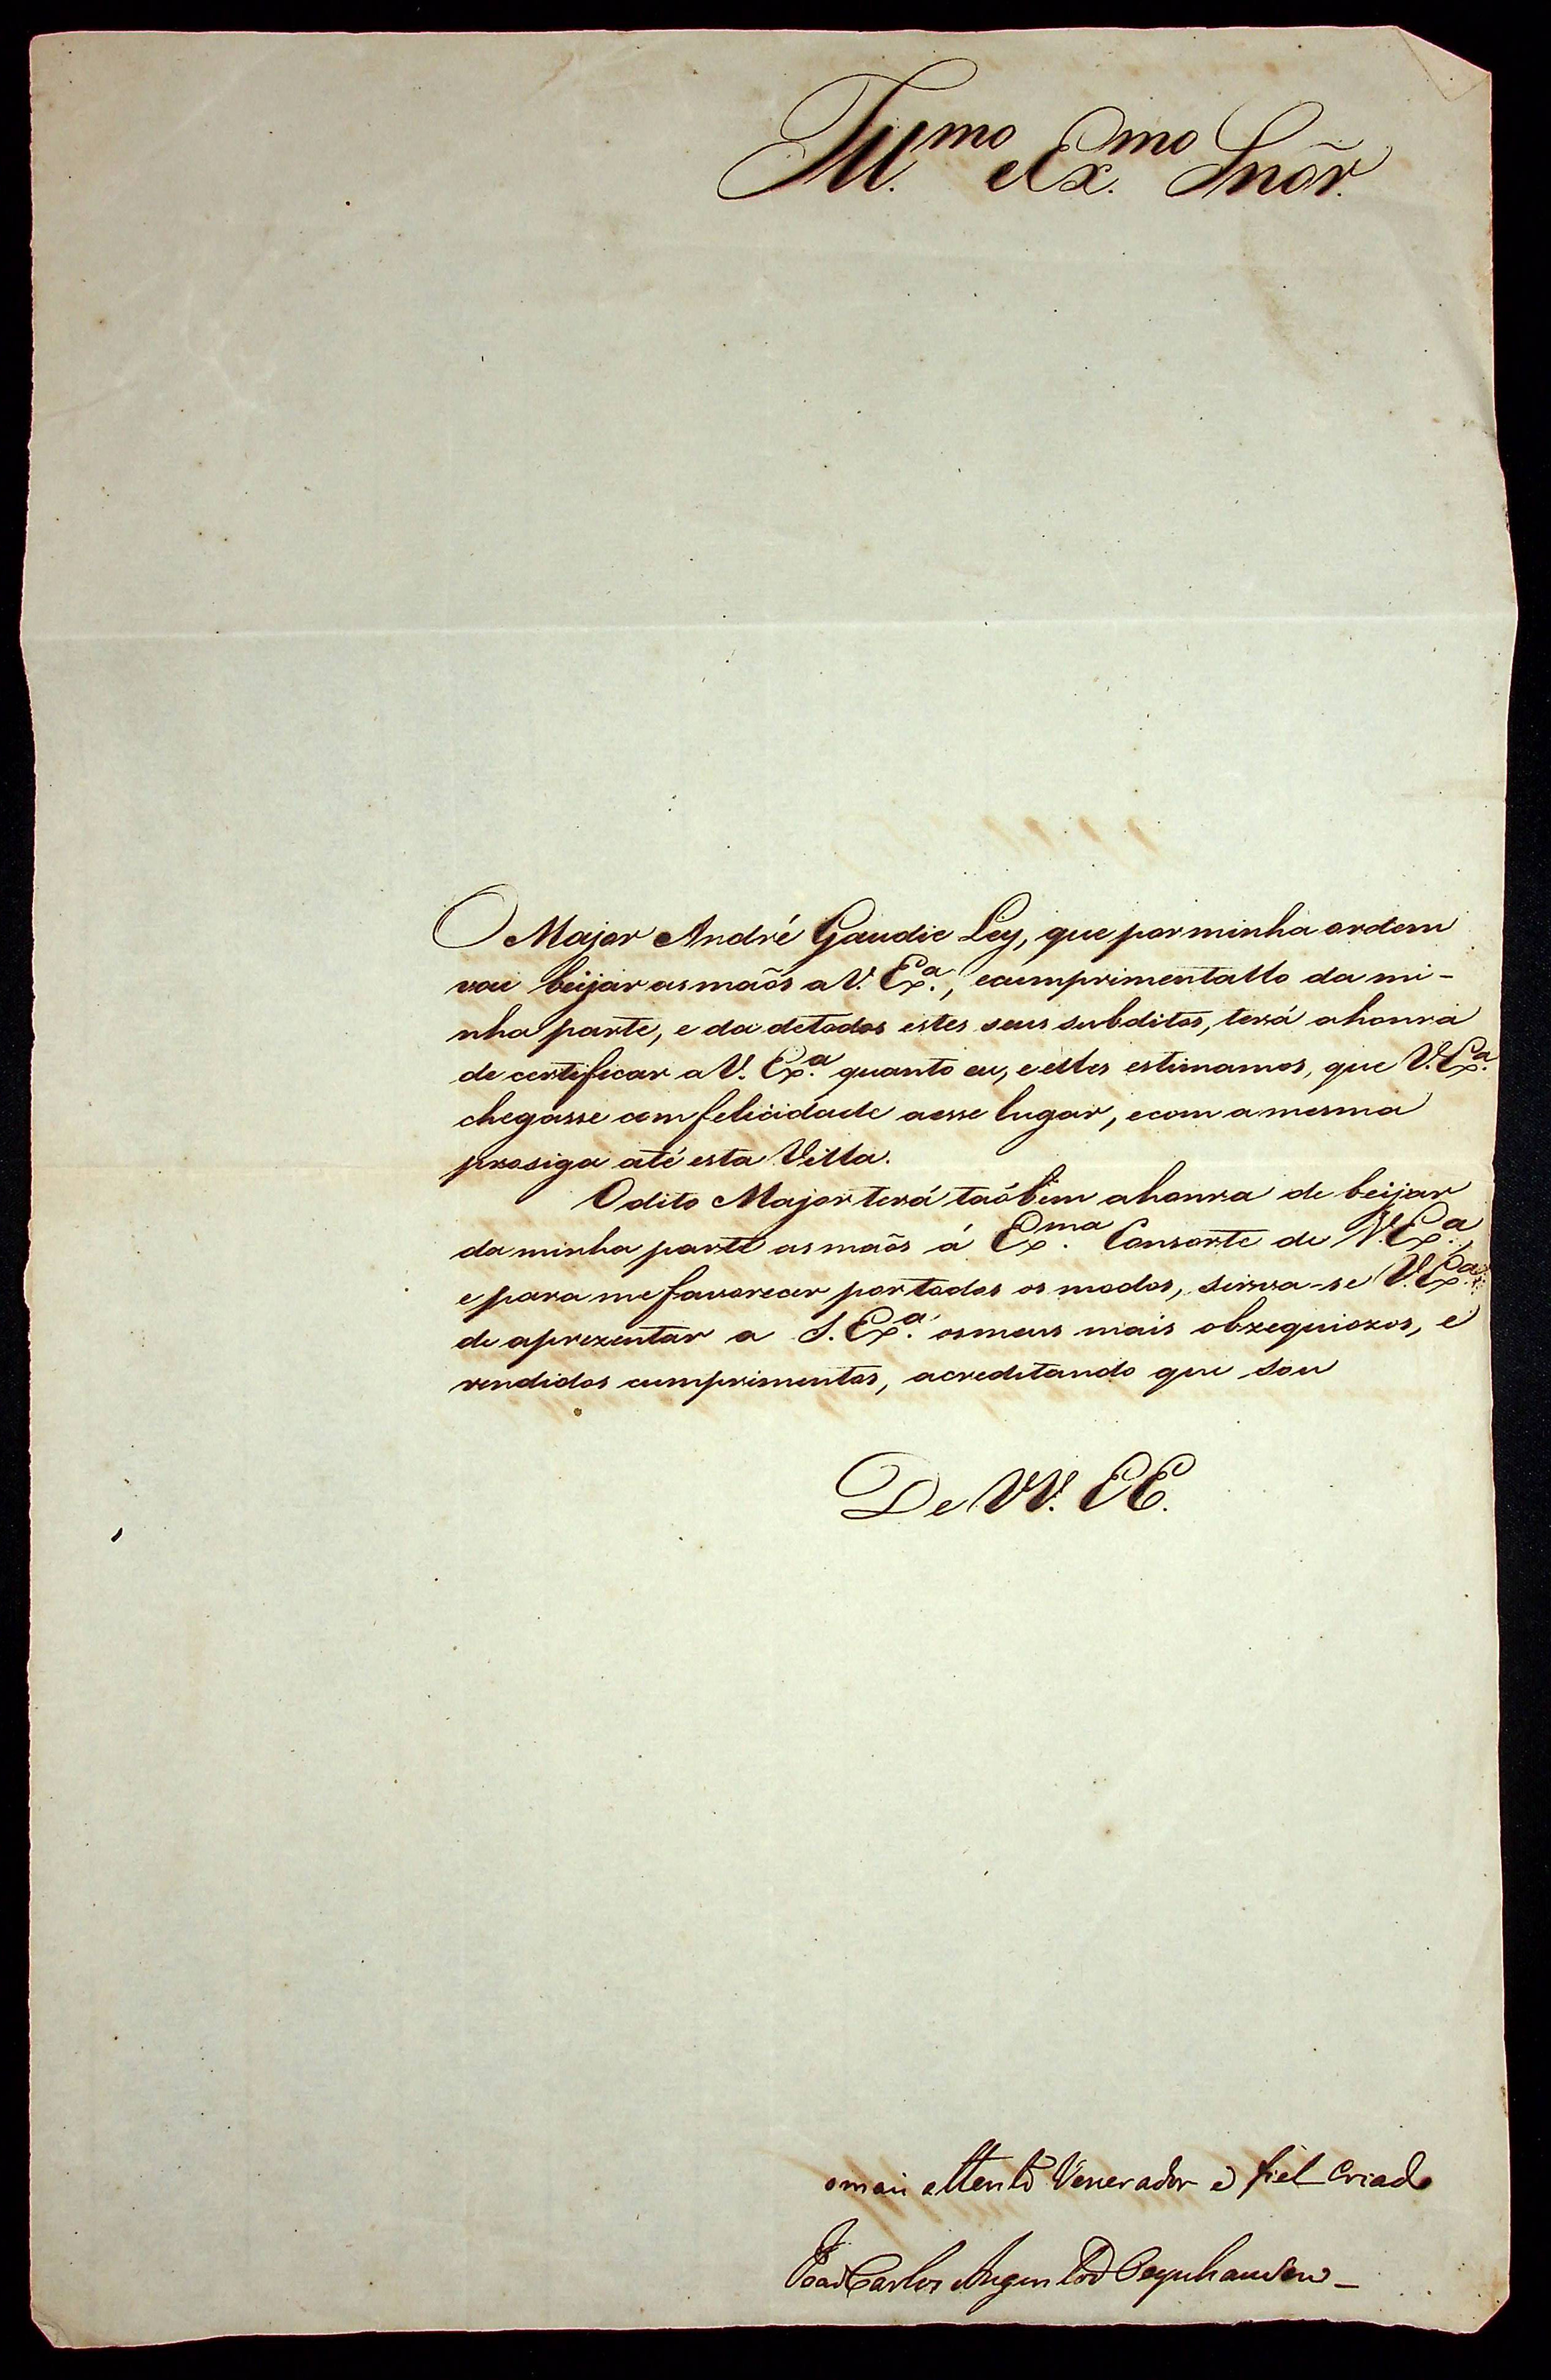 Ill.mo eEx.mo Snõr.
O Major André Gaudie Ley, que por minha ordem
vai beijar as maõs a V. Ex.a, ecumprimentallo da mi-
nha parte, e da detodos estes seus subditos, terá ahonra
de certificar a V. Ex.a quanto eu, eelles estimamos, que V. Ex.a
chegásse com felicidade aesse lugar, ecom amesma
prosiga até esta Villa.
O dito Major terá taóbem ahonra de beijar
da minha parte asmaõs á Ex.ma Consorte de V. Ex.a,
e para me favorecer portodos os modos, sirva-se V. Ex.a
de aprezentar a S. Ex.a osmeus mais obzequiozos, e
rendidos cumprimentos, acreditando que sou
De VV. EE.
omais attento Venerador e fiel Criado
João Carlos Augusto d'Oeynhausen_